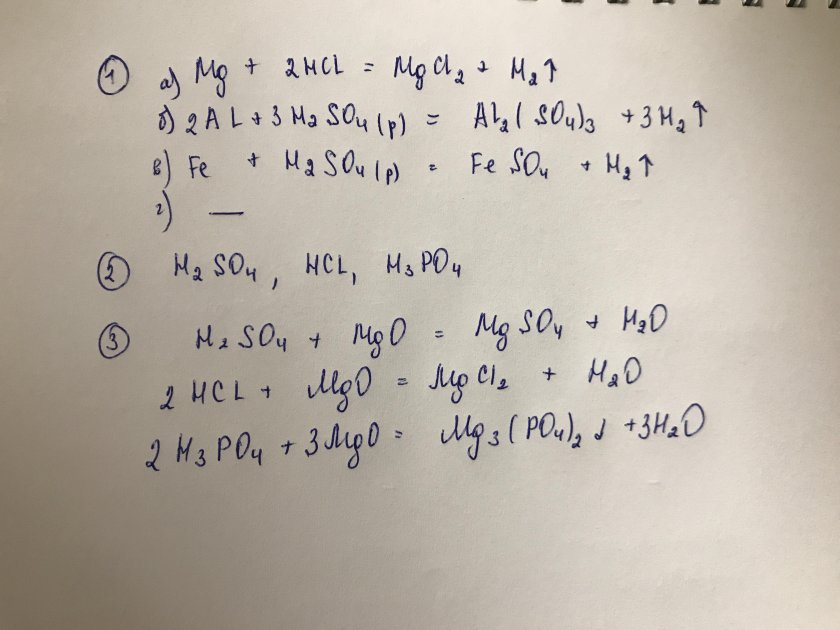 ① а) Mg + 2HCL = MgCl₂ + H₂↑
б) 2AL + 3H₂SO₄(р) = Al₂(SO₄)₃ + 3H₂↑
в) Fe + H₂SO₄(р) = FeSO₄ + H₂↑
г) —
② H₂SO₄, HCL, H₃PO₄
③ H₂SO₄ + MgO = MgSO₄ + H₂O
2HCL + MgO = MgCl₂ + H₂O
2H₃PO₄ + 3MgO = Mg₃(PO₄)₂↓ + 3H₂O